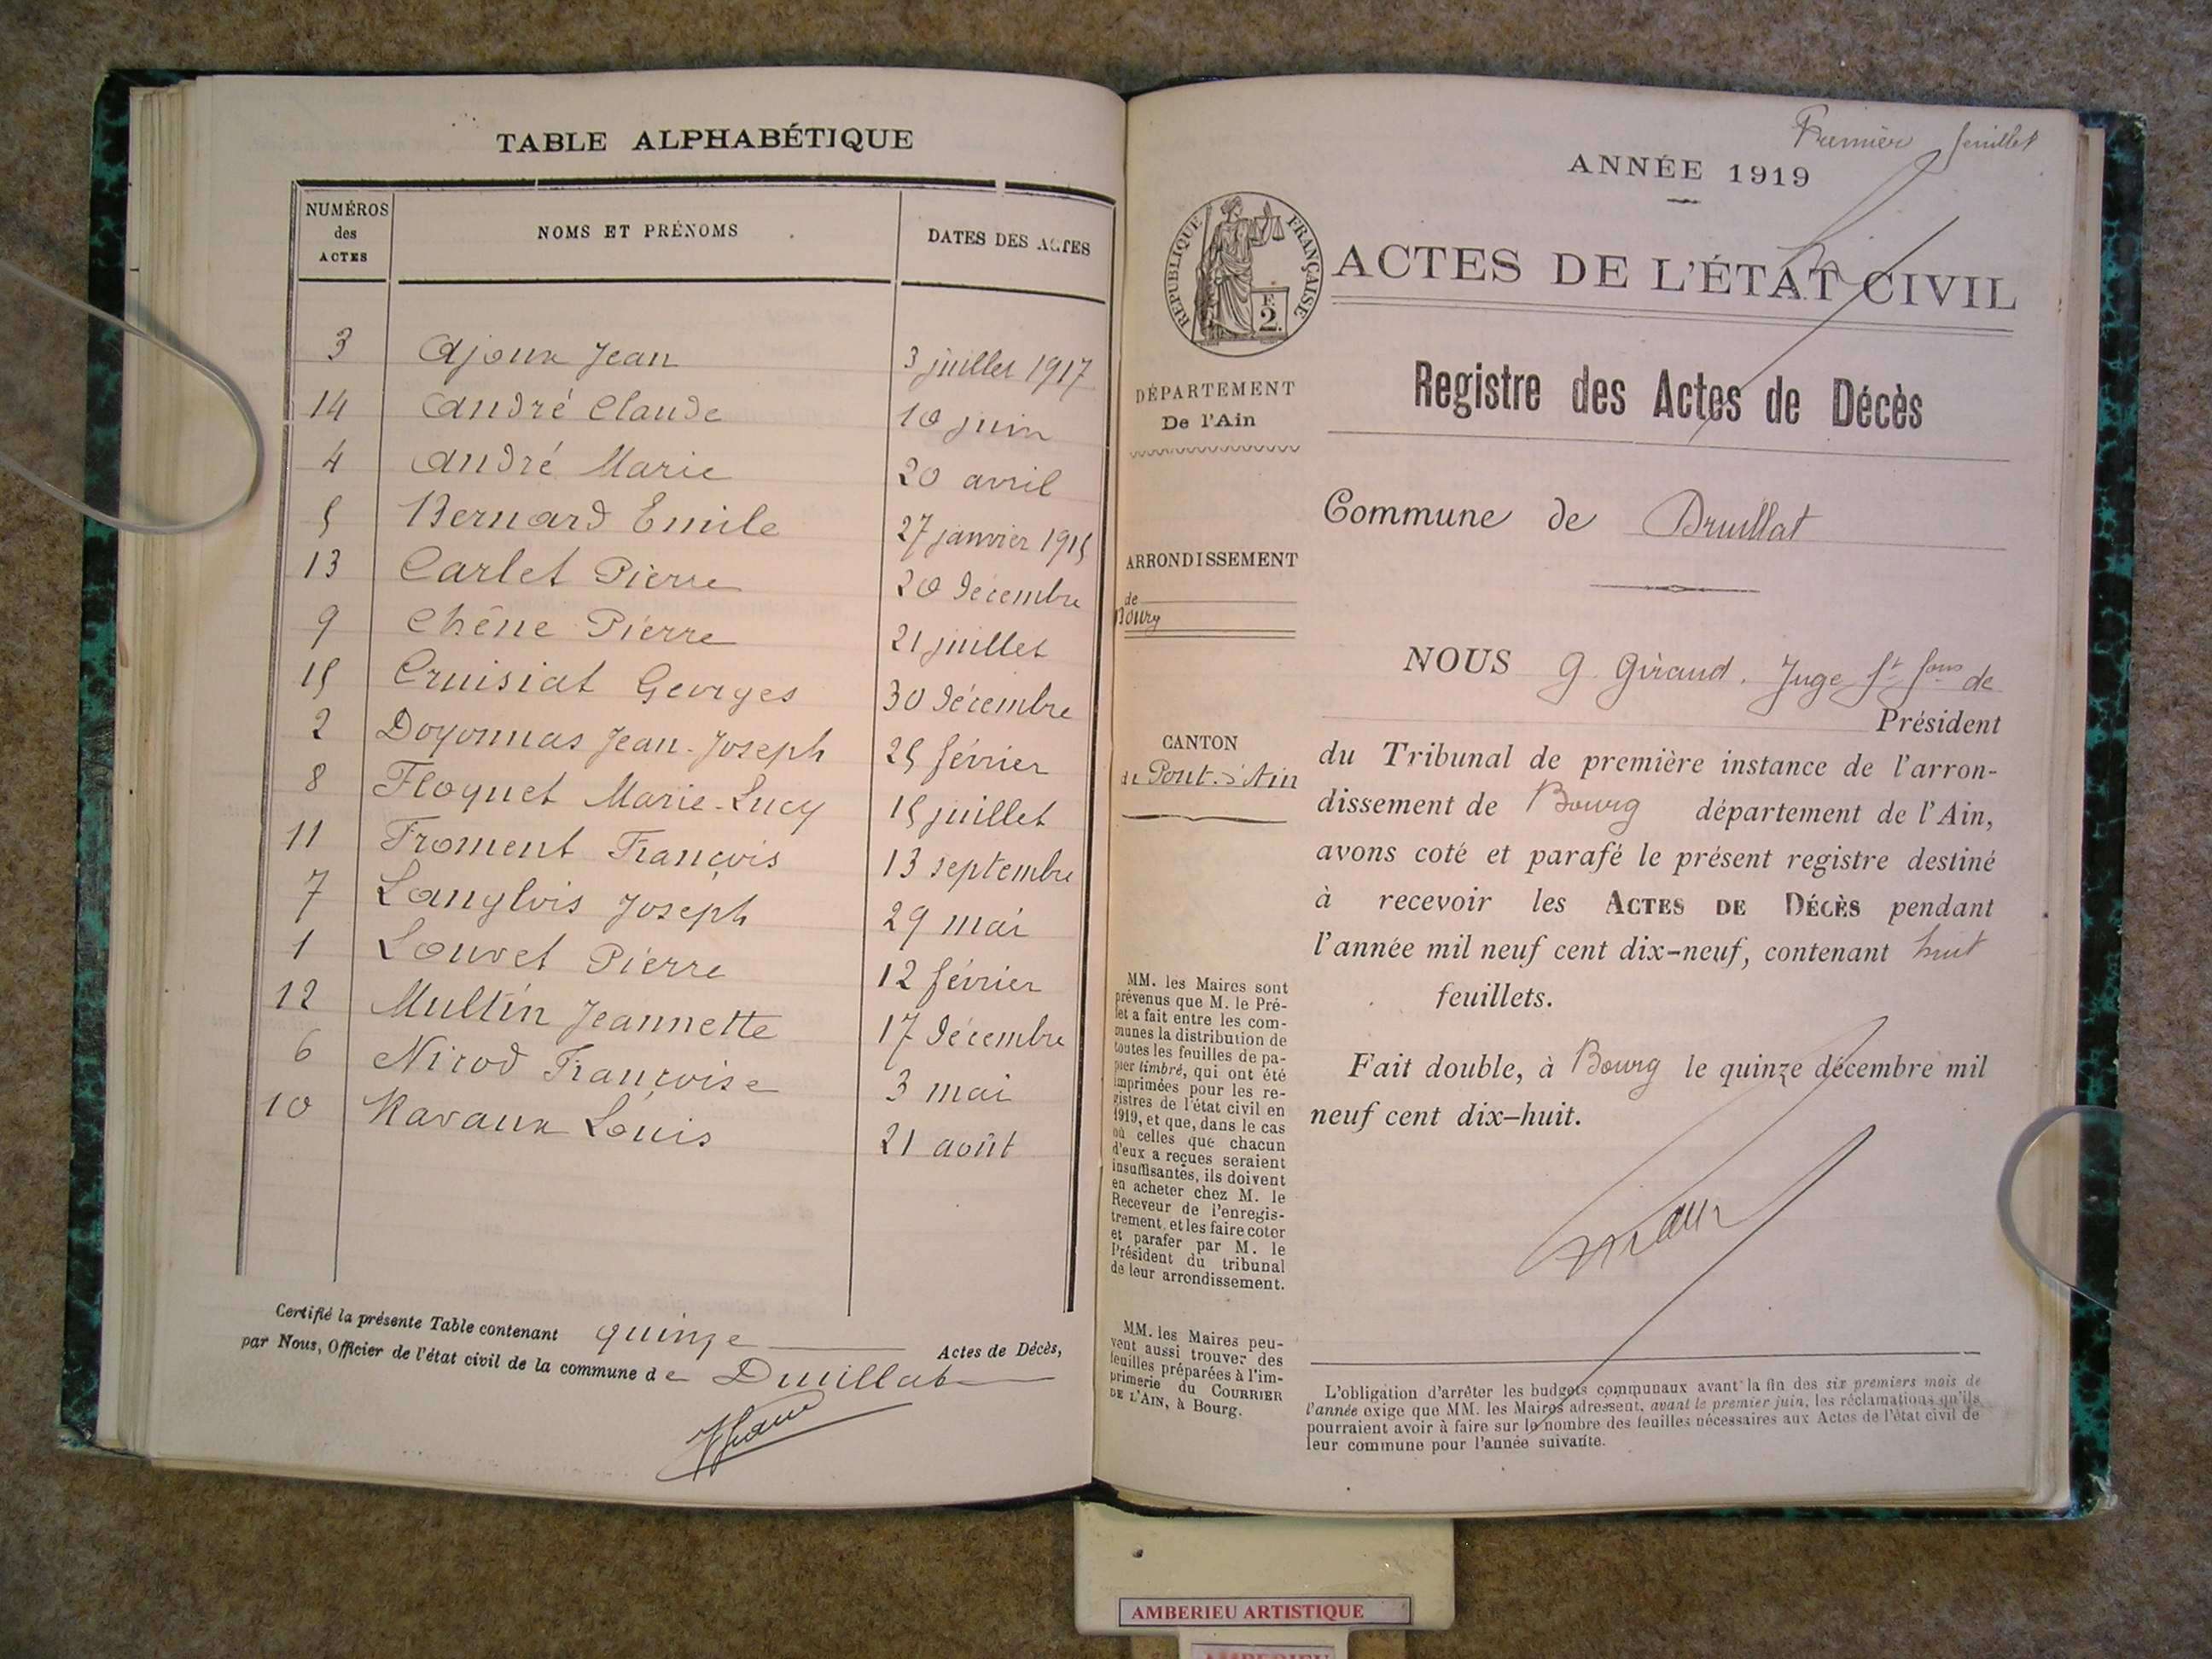 TABLE ALPHABÉTIQUE
NUMÉROS des ACTES
NOMS ET PRÉNOMS
DATES DES ACTES
3 Ajoux Jean 3 juillet 1917
14 André Claude 10 juin
4 André Marie 20 avril
5 Bernard Emile 27 janvier 1915
13 Carlet Pierre 20 décembre
9 Chêne Pierre 21 juillet
15 Cruisiat Georges 30 décembre
2 Doyonnas Jean-Joseph 25 février
8 Floquet Marie-Lucy 15 juillet
11 Froment François 13 septembre
7 Langlois Joseph 29 mai
1 Louvet Pierre 12 février
12 Multin Jeannette 17 décembre
6 Nicod Françoise 3 mai
10 Ravaux Louis 21 août
Certifié la présente Table contenant quinze Actes de Décès,
par Nous, Officier de l'état civil de la commune de Druillat
Premier feuillet
ANNÉE 1919
RÉPUBLIQUE FRANÇAISE
F.
2.
ACTES DE L'ÉTAT CIVIL
Registre des Actes de Décès
DÉPARTEMENT
De l'Ain
Commune de Druillat
ARRONDISSEMENT
de
Bourg
CANTON
de Pont-d'Ain
NOUS G. Giraud, Juge
de
Président
du Tribunal de première instance de l'arron-
dissement de Bourg département de l'Ain,
avons coté et parafé le présent registre destiné
à recevoir les ACTES DE DÉCÈS pendant
l'année mil neuf cent dix-neuf, contenant huit
feuillets.
Fait double, à Bourg le quinze décembre mil
neuf cent dix-huit.
MM. les Maires sont
prévenus que M. le Pré-
fet a fait entre les com-
munes la distribution de
toutes les feuilles de pa-
pier timbré, qui ont été
imprimées pour les re-
gistres de l'état civil en
1919, et que, dans le cas
où celles que chacun
d'eux a reçues seraient
insuffisantes, ils doivent
en acheter chez M. le
Receveur de l'enregis-
trement, et les faire coter
et parafer par M. le
Président du tribunal
de leur arrondissement.
MM. les Maires peu-
vent aussi trouver des
feuilles préparées à l'im-
primerie du COURRIER
DE L'AIN, à Bourg.
L'obligation d'arrêter les budgets communaux avant la fin des six premiers mois de
l'année exige que MM. les Maires adressent, avant le premier juin, les réclamations qu'ils
pourraient avoir à faire sur le nombre des feuilles nécessaires aux Actes de l'état civil de
leur commune pour l'année suivante.
AMBERIEU ARTISTIQUE
AMBERIEU